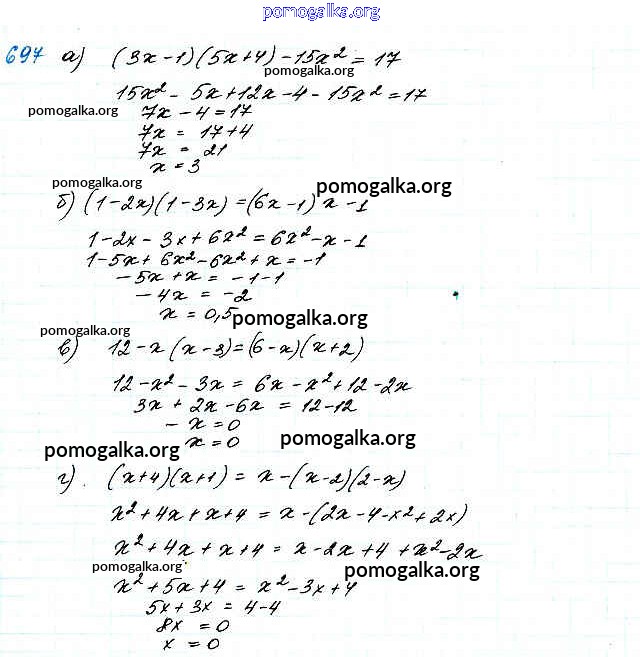 pomogalka.org
697 а) (3x-1)(5x+4)-15x² = 17
pomogalka.org
15x² - 5x+12x-4-15x²=17
pomogalka.org
7x-4=17
7x = 17+4
7x = 21
x = 3
pomogalka.org
pomogalka.org
б) (1-2x)(1-3x)=(6x-1)x-1
1-2x-3x+6x²=6x²-x-1
1-5x+6x²-6x²+x=-1
-5x+x = -1-1
-4x = -2
x = 0,5
pomogalka.org
pomogalka.org
в) 12-x(x-3)=(6-x)(x+2)
12-x²-3x = 6x-x²+12-2x
3x+2x-6x = 12-12
-x=0
x=0
pomogalka.org
pomogalka.org
г). (x+4)(x+1) = x-(x-2)(2-x)
x²+4x+x+4 = x-(2x-4-x²+2x)
x²+4x+x+4 = x-2x+4+x²-2x
pomogalka.org
pomogalka.org
x²+5x+4 = x²-3x+4
5x+3x = 4-4
8x = 0
x = 0